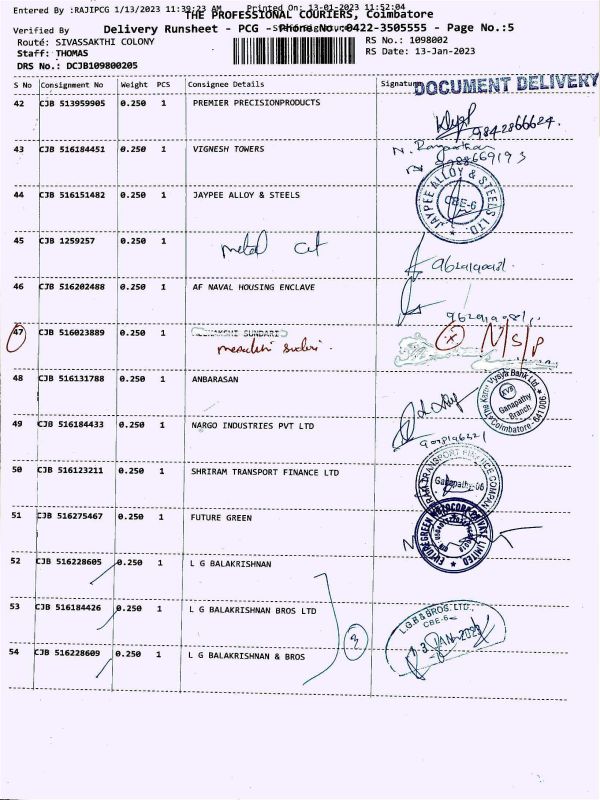 Entered By :RAJIPCG 1/13/2023 11:39:23 AM Printed On: 13-01-2023 11:52:04
THE PROFESSIONAL COURIERS, Coimbatore
Verified By Delivery Runsheet - PCG - Phone No.:0422-3505555 - Page No.:5
Route: SIVASSAKTHI COLONY RS No.: 1098002
Staff: THOMAS RS Date: 13-Jan-2023
DRS No.: DCJB109800205
S No Consignment No Weight PCS Consignee Details Signature
DOCUMENT DELIVERY
42 CJB 513959905 0.250 1 PREMIER PRECISIONPRODUCTS
9842866624.
43 CJB 516184451 0.250 1 VIGNESH TOWERS
44 CJB 516151482 0.250 1 JAYPEE ALLOY & STEELS
JAYPEE ALLOY & STEELS LTD.
CBE-6
45 CJB 1259257 0.250 1
metal cut
46 CJB 516202488 0.250 1 AF NAVAL HOUSING ENCLAVE
47 CJB 516023889 0.250 1 SUNDARI
N/S/P
48 CJB 516131788 0.250 1 ANBARASAN
The Karur Vysya Bank Ltd
KVB
Ganapathy
Branch
Coimbatore-641 006
49 CJB 516184433 0.250 1 NARGO INDUSTRIES PVT LTD
50 CJB 516123211 0.250 1 SHRIRAM TRANSPORT FINANCE LTD
Ganapathy-06
51 CJB 516275467 0.250 1 FUTURE GREEN
52 CJB 516228605 0.250 1 L G BALAKRISHNAN
53 CJB 516184426 0.250 1 L G BALAKRISHNAN BROS LTD
L.G.B & BROS. LTD.,
CBE-6
13 JAN 2023
54 CJB 516228609 0.250 1 L G BALAKRISHNAN & BROS